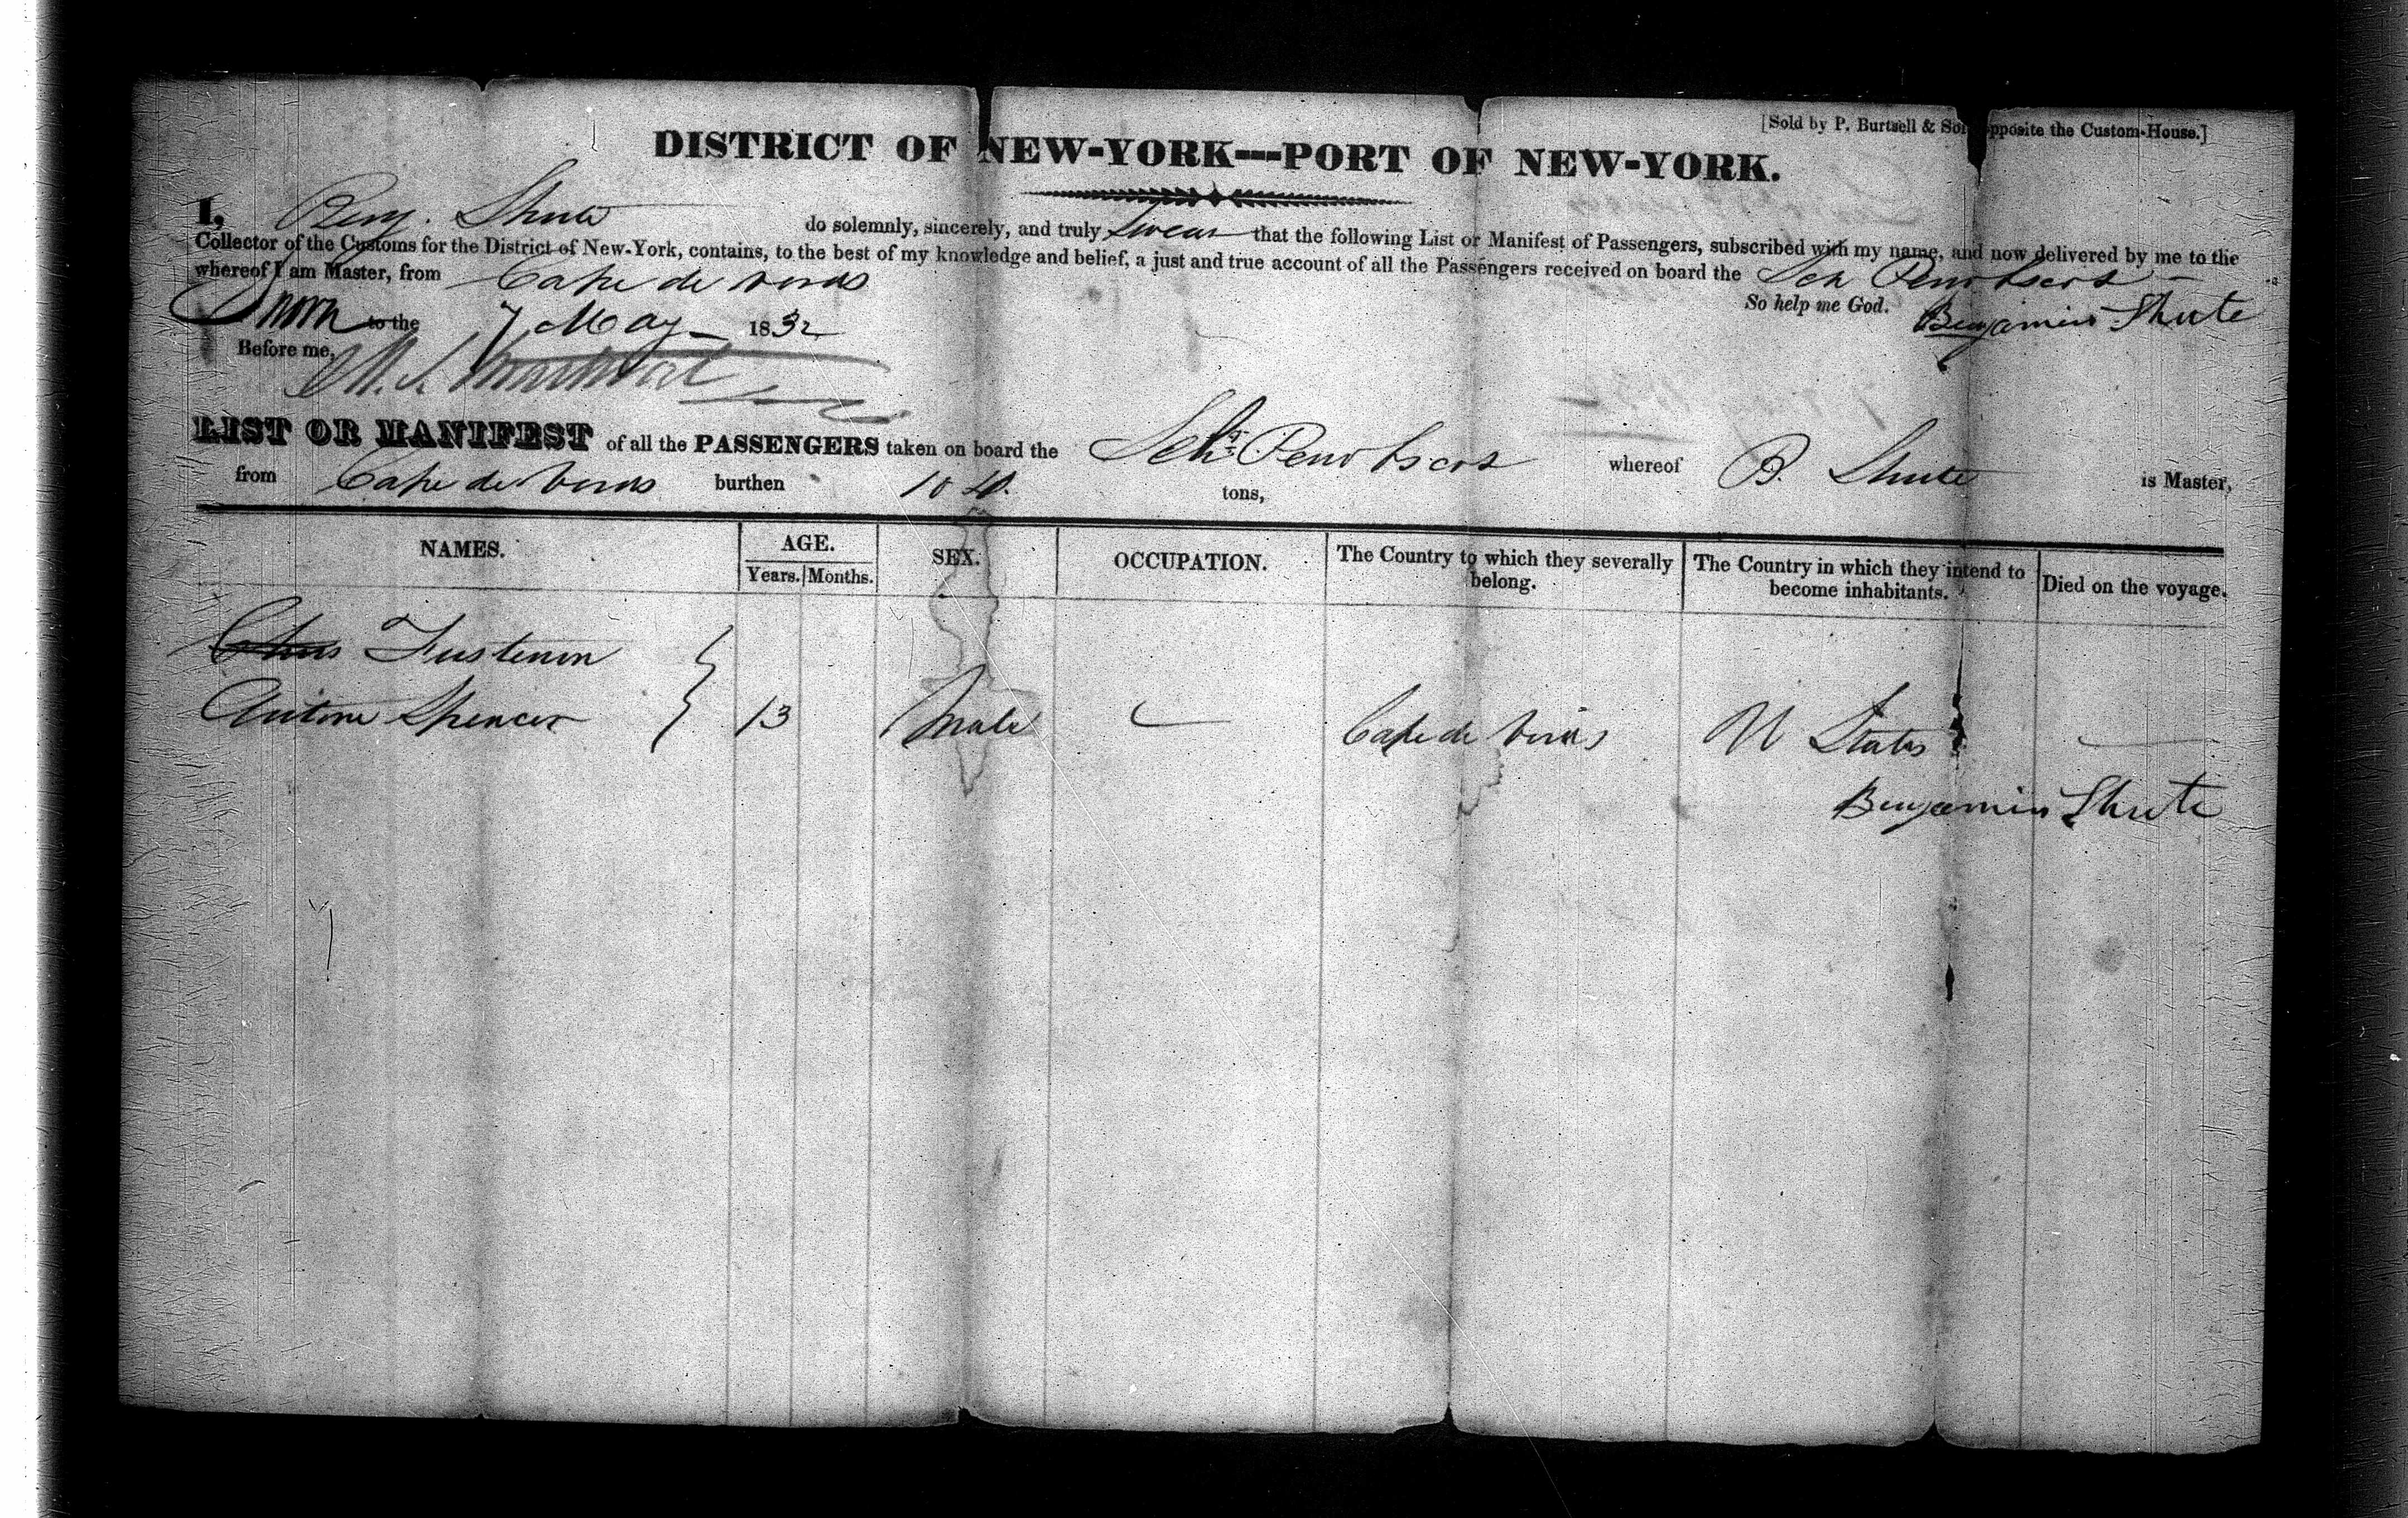 [Sold by P. Burtsell & Son opposite the Custom-House.]
DISTRICT OF NEW-YORK---PORT OF NEW-YORK.
I, Benj. Shute do solemnly, sincerely, and truly swear that the following List or Manifest of Passengers, subscribed with my name, and now delivered by me to the
Collector of the Customs for the District of New-York, contains, to the best of my knowledge and belief, a just and true account of all the Passengers received on board the Sch Penobscot
whereof I am Master, from Cape de Verds
So help me God. Benjamin Shute
Sworn to the 7 May 1832
Before me,
LIST OR MANIFEST of all the PASSENGERS taken on board the Schr. Penobscot whereof B. Shute is Master,
from Cape de Verds burthen 104. tons,
NAMES. AGE. SEX. OCCUPATION. The Country to which they severally belong. The Country in which they intend to become inhabitants. Died on the voyage.
Years. Months.
Antone Spencer } 13 Male Cape de Verds U States
Benjamin Shute